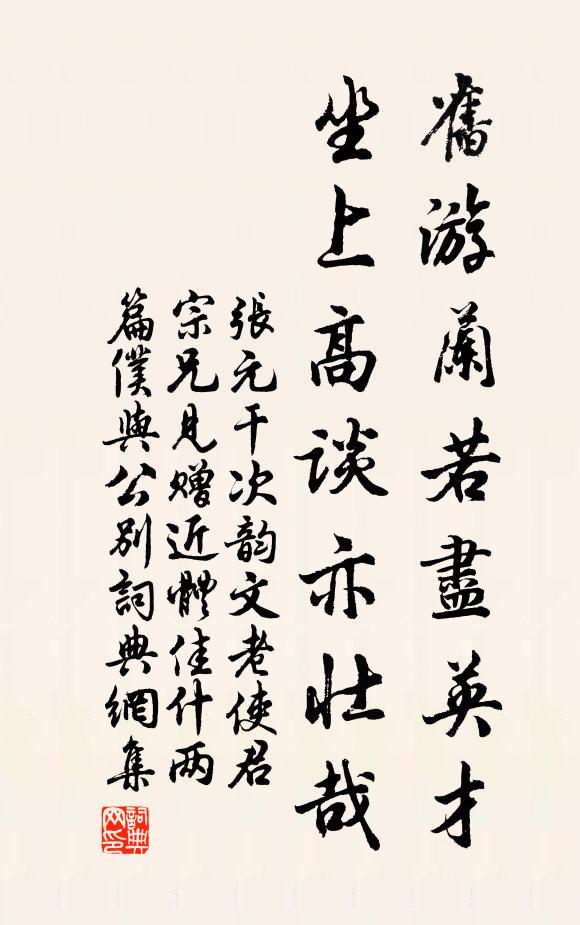 舊游蘭若盡英才
坐上高談亦壯哉
張元干次韵文老使君
宗兄見贈近體佳什两
篇僕與公別詞典網集
詞典網印